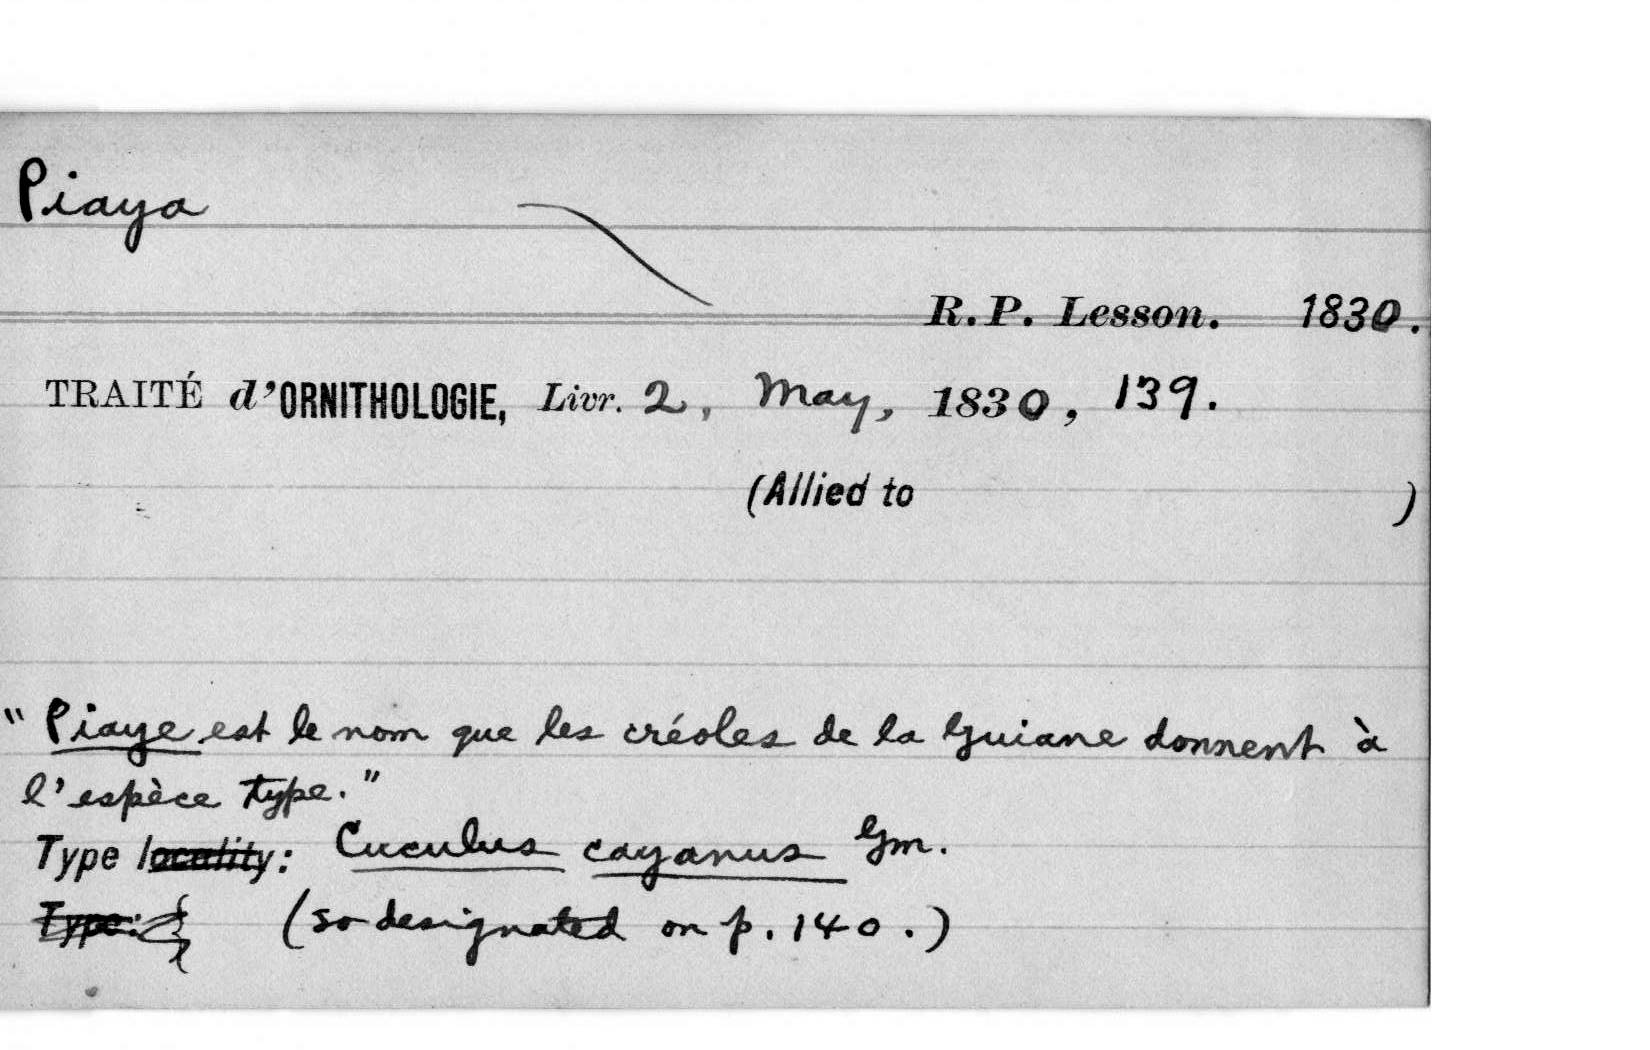 Piaya
R. P. Lesson. 1830.
TRAITÉ d'ORNITHOLOGIE, Livr. 2, May, 1830, 139.
(Allied to )
" Piaye est le nom que les créoles de la Guiane donnent à
l'espèce type."
Type locality: Cuculus cayanus Gm.
Type: (so designated on p. 140.)